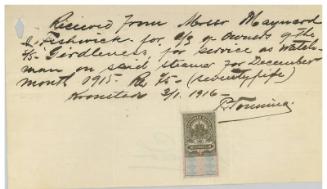 Received from Messr Maynard
& Fishwick for a/c of owners of the
S/S Girdleness for service as watch-
man on said steamer for December
month 1915 Ro 75 (seventyfife)
Kronstad 3/1 1916 -